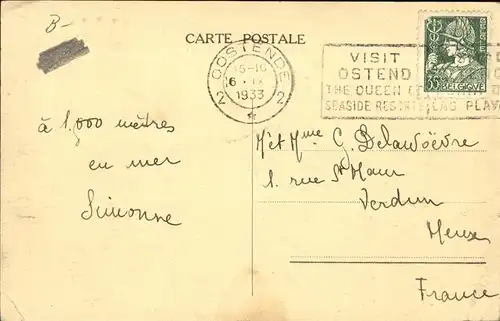 B-
CARTE POSTALE
OOSTENDE
15-16
1933
2 2
VISIT
OSTEND
THE QUEEN OF
SEASIDE
PLAY
35
BELGIQUE
à 1,000 mètres
en mer
Simonne
M et Mme G. Delawoëvre
1. rue St Maur
Verdun
Meuse
France